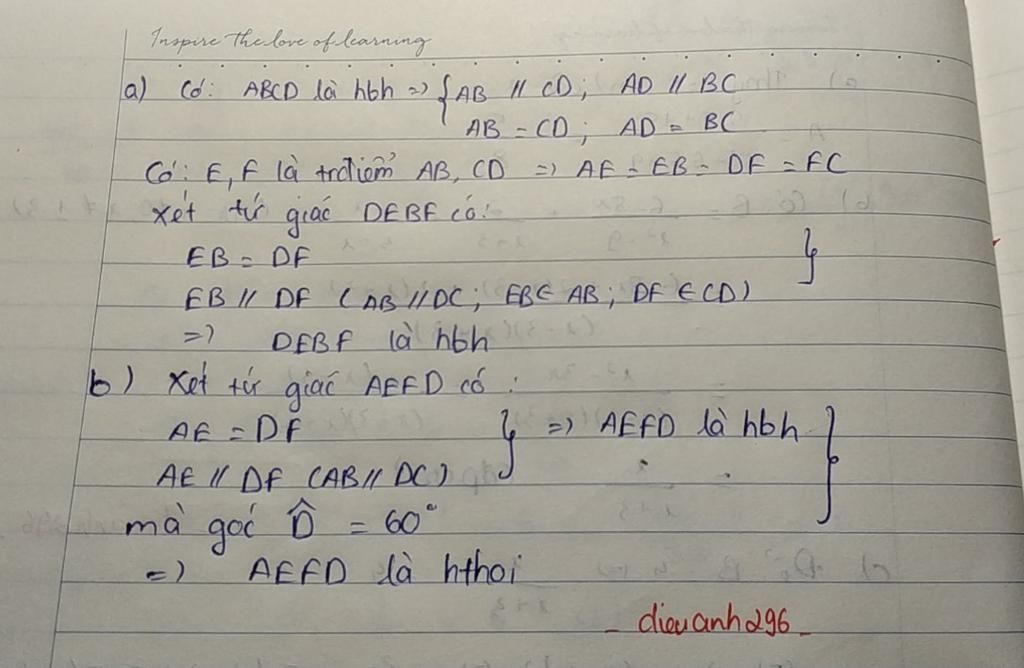 Inspire The love of learning
a) Có: ABCD là hbh => { AB // CD; AD // BC
AB = CD; AD = BC
Có: E, F là trđiểm AB, CD => AE = EB = DF = FC
Xét tứ giác DEBF có:
EB = DF
EB // DF (AB // DC; EB ∈ AB; DF ∈ CD) }
=> DEBF là hbh
b) Xét tứ giác AEFD có:
AE = DF } => AEFD là hbh }
AE // DF (AB // DC)
mà góc D̂ = 60°
=> AEFD là hthoi
- dieuanh296 -